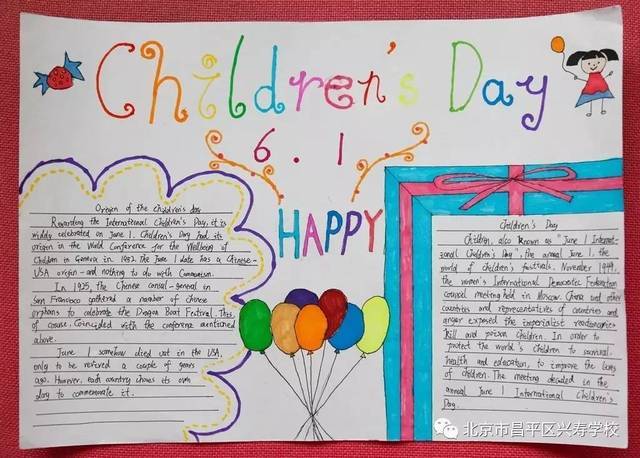 Children's Day
6.1
HAPPY
Origin of the Children's day
Regarding the International Children's Day, it is
widly celebrated on June 1. Children's Day had its
origin in the World Conference for the Wellbeing of
Children in Geneva in 1982. The June 1 date has a Chinese-
USA origin-and nothing to do with Communism.
In 1925, the Chinese consul-general in
San Francisco gathered a number of Chinese
orphans to celebrate the Dragon Boat Festival. This,
of couse, Coincided with the conference mentioned
above.
June 1 somehow died out in the USA,
only to be revived a couple of years
ago. However, each country choses its own
day to commemorate it.
Children's Day
Children, also known as "June 1 Internati-
onal Children's Day", the annual June 1, the
world of children's festivals. November 1949,
the women's International Democratic Federation
council meeting held in Moscow. China and other
countries and representatives of countries and
anger exposed the imperialist
kill and poison Children. In order to
protect the world's children to survival,
health and education, to improve the lives
of children. The meeting decided in the
annual June 1 International Children's
Day.
北京市昌平区兴寿学校